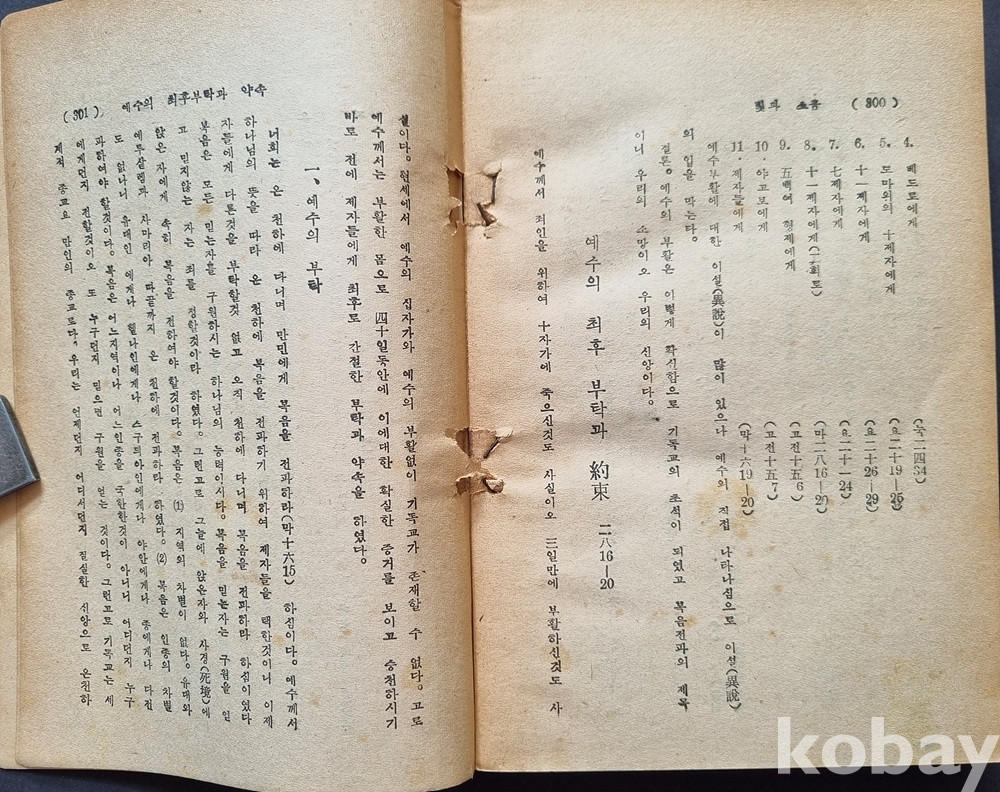 (300) 빛과 소금
4. 베드로에게 (눅二四34)
5. 도마외의 十제자에게 (요二十19—25)
6. 十一제자에게 (요二十26—29)
7. 七제자에게 (요二十一24)
8. 十一제자에게 (마二八16—20)
9. 五백여 형제에게 (고전十五6)
10. 야고보에게 (고전十五7)
11. 제자들에게 (막十六19—20)
예수부활에 대한 이설(異說)이 많이 있으나 예수의 직접 나타나심으로 이설(異說)
의 입을 막는다.
결론. 예수의 부활은 이렇게 확신함으로 기독교의 초석이 되였고 복음전파의 제목
이니 우리의 소망이오 우리의 신앙이다.
예수의 최후 부탁과 約束 二八16—20
예수께서 죄인을 위하여 十자가에 죽으신것도 사실이오 三일만에 부활하신것도 사
실이다. 현세에서 예수의 십자가와 예수의 부활없이 기독교가 존재할 수 없다. 고로
예수께서는 부활한 몸으로 四十일동안에 이에대한 확실한 증거를 보이고 승천하시기
바로 전에 제자들에게 최후로 간절한 부탁과 약속을 하였다.
一, 예수의 부탁
너희는 온 천하에 다니며 만민에게 복음을 전파하라(막十六15) 하심이다. 예수께서
하나님의 뜻을 따라 온 천하에 복음을 전파하기 위하여 제자들을 택한것이니 이제
자들에게 다른것을 부탁할것 없고 오직 천하에 다니며 복음을 전파하라 하심이였다
복음은 모든 믿는자를 구원하시는 하나님의 능력이시다. 복음을 믿는자는 구원을 얻
고 믿지않는 자는 죄를 정할것이라 하였다. 그런고로 그늘에 앉은자와 사경(死境)에
앉은 자에게 속히 복음을 전하여야 할것이다. 복음은 (1) 지역의 차별이 없다. 유대와
예루살렘과 사마리아 땅끝까지 온 천하에 전파하라 하였다. (2) 복음은 인종의 차별
도 없나니 유태인에게나 헬나인에게나 스구듸아인에게나 야만에게나 종에게나 다전
파하여야 할것이다. 복음은 어느지역이나 어느인종을 국한한것이 아니니 어디던지 누구
에게던지 전할것이오 또 누구던지 믿으면 구원을 얻는 것이다. 그런고로 기독교는 세
계적 종교요 만인의 종교로다. 우리는 언제던지 어디서던지 진실한 신앙으로 온천하
예수의 최후부탁과 약속 (301)
kobay